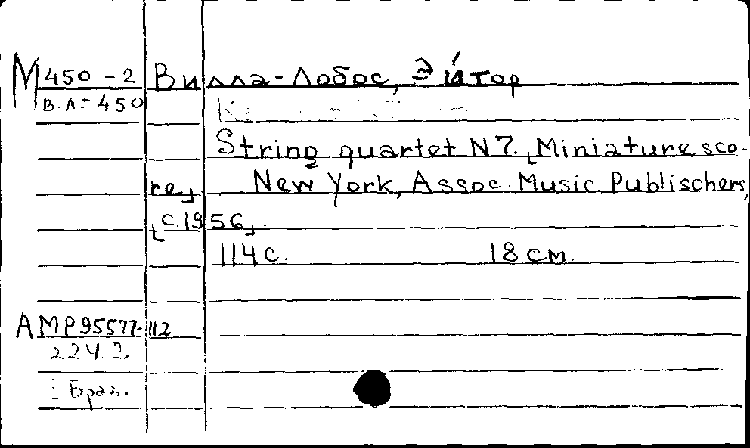 М450-2 Вилла-Лобос, Эйтор
В.Л-450
String quartet N7. [Miniature sco-
re]. New York, Assoc. Music Publischers,
[c.1956].
114 с. 18 см.
AMP95577-112